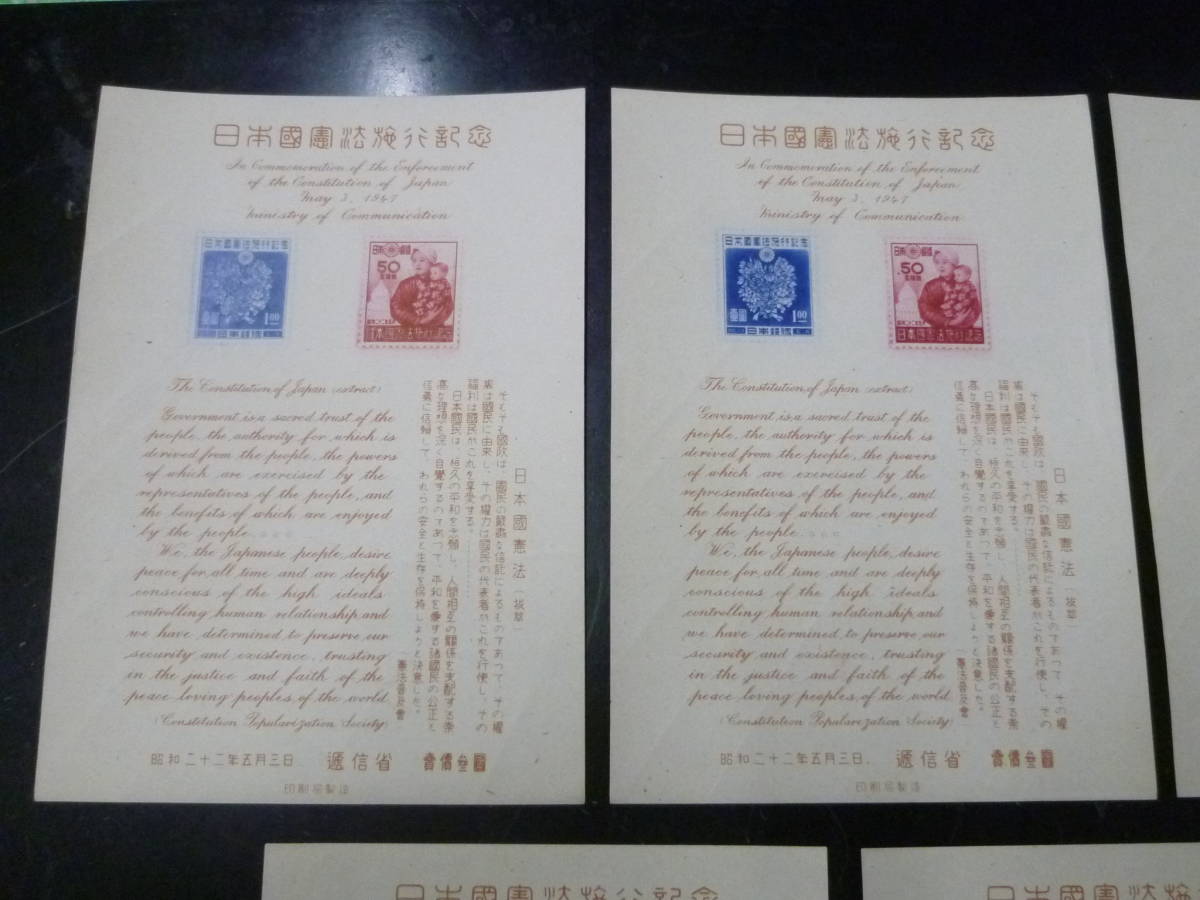 日本國憲法施行記念
In Commemoration of the Enforcement
of the Constitution of Japan
May 3, 1947
Ministry of Communication
日本國憲法施行記念
壹圓
1.00
日本郵便
日本郵便
50
日本國憲法施行記念
The Constitution of Japan (extract)
Government is a sacred trust of the
people, the authority for which is
derived from the people, the powers
of which are exercised by the
representatives of the people, and
the benefits of which are enjoyed
by the people.
We, the Japanese people, desire
peace for all time and are deeply
conscious of the high ideals
controlling human relationship, and
we have determined to preserve our
security and existence, trusting
in the justice and faith of the
peace loving peoples of the world
(Constitution Popularization Society)
日本國憲法(抜萃)
そもそも國政は、國民の嚴肅な信託によるものであつて、その權
威は國民に由來し、その權力は國民の代表者がこれを行使し、その
福利は國民がこれを享受する。
日本國民は、恒久の平和を念願し、人間相互の關係を支配する崇
高な理想を深く自覺するのであつて、平和を愛する諸國民の公正と
信義に信頼して、われらの安全と生存を保持しようと決意した。
憲法普及會
昭和二十二年五月三日 遞信省 賣價參圓
印刷局製造
日本國憲法施行記念
In Commemoration of the Enforcement
of the Constitution of Japan
May 3, 1947
Ministry of Communication
日本國憲法施行記念
壹圓
1.00
日本郵便
日本郵便
50
日本國憲法施行記念
The Constitution of Japan (extract)
Government is a sacred trust of the
people, the authority for which is
derived from the people, the powers
of which are exercised by the
representatives of the people, and
the benefits of which are enjoyed
by the people.
We, the Japanese people, desire
peace for all time and are deeply
conscious of the high ideals
controlling human relationship, and
we have determined to preserve our
security and existence, trusting
in the justice and faith of the
peace loving peoples of the world
(Constitution Popularization Society)
日本國憲法(抜萃)
そもそも國政は、國民の嚴肅な信託によるものであつて、その權
威は國民に由來し、その權力は國民の代表者がこれを行使し、その
福利は國民がこれを享受する。
日本國民は、恒久の平和を念願し、人間相互の關係を支配する崇
高な理想を深く自覺するのであつて、平和を愛する諸國民の公正と
信義に信頼して、われらの安全と生存を保持しようと決意した。
憲法普及會
昭和二十二年五月三日. 遞信省 賣價參圓
印刷局製造
日本國憲法施行記念
日本國憲法施